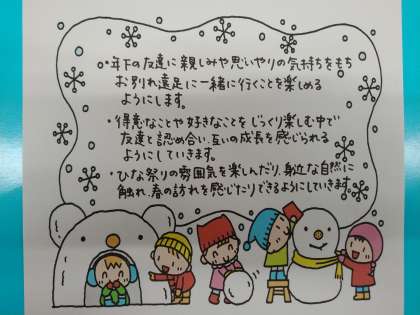 ・年下の友達に親しみや思いやりの気持ちをもち
お別れ遠足に一緒に行くことを楽しめる
ようにします。
・得意なことや好きなことをじっくり楽しむ中で
友達と認め合い、互いの成長を感じられる
ようにしていきます。
・ひな祭りの雰囲気を楽しんだり、身近な自然に
触れ、春の訪れを感じたりできるようにしていきます。